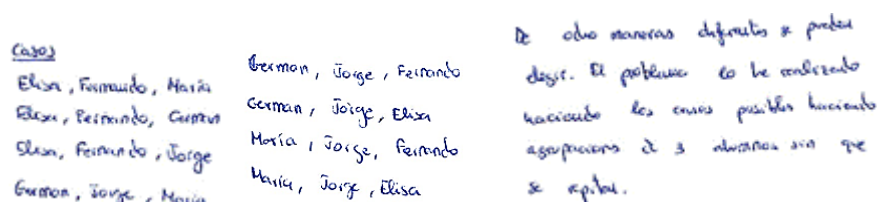 Casos
Elisa, Fernando, María
Elisa, Fernando, German
Elisa, Fernando, Jorge
German, Jorge, María
German, Jorge, Fernando
German, Jorge, Elisa
María, Jorge, Fernando
María, Jorge, Elisa
De ocho maneras diferentes se pueden
elegir. El problema lo he realizado
haciendo los casos posibles haciendo
agrupaciones de 3 alumnos sin que
se repitan.